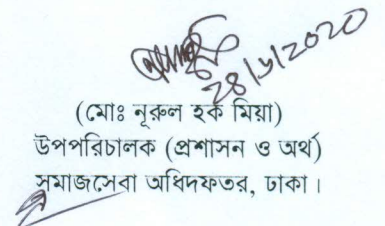 28/১/2020
(মোঃ নূরুল হক মিয়া)
উপপরিচালক (প্রশাসন ও অর্থ)
সমাজসেবা অধিদফতর, ঢাকা।